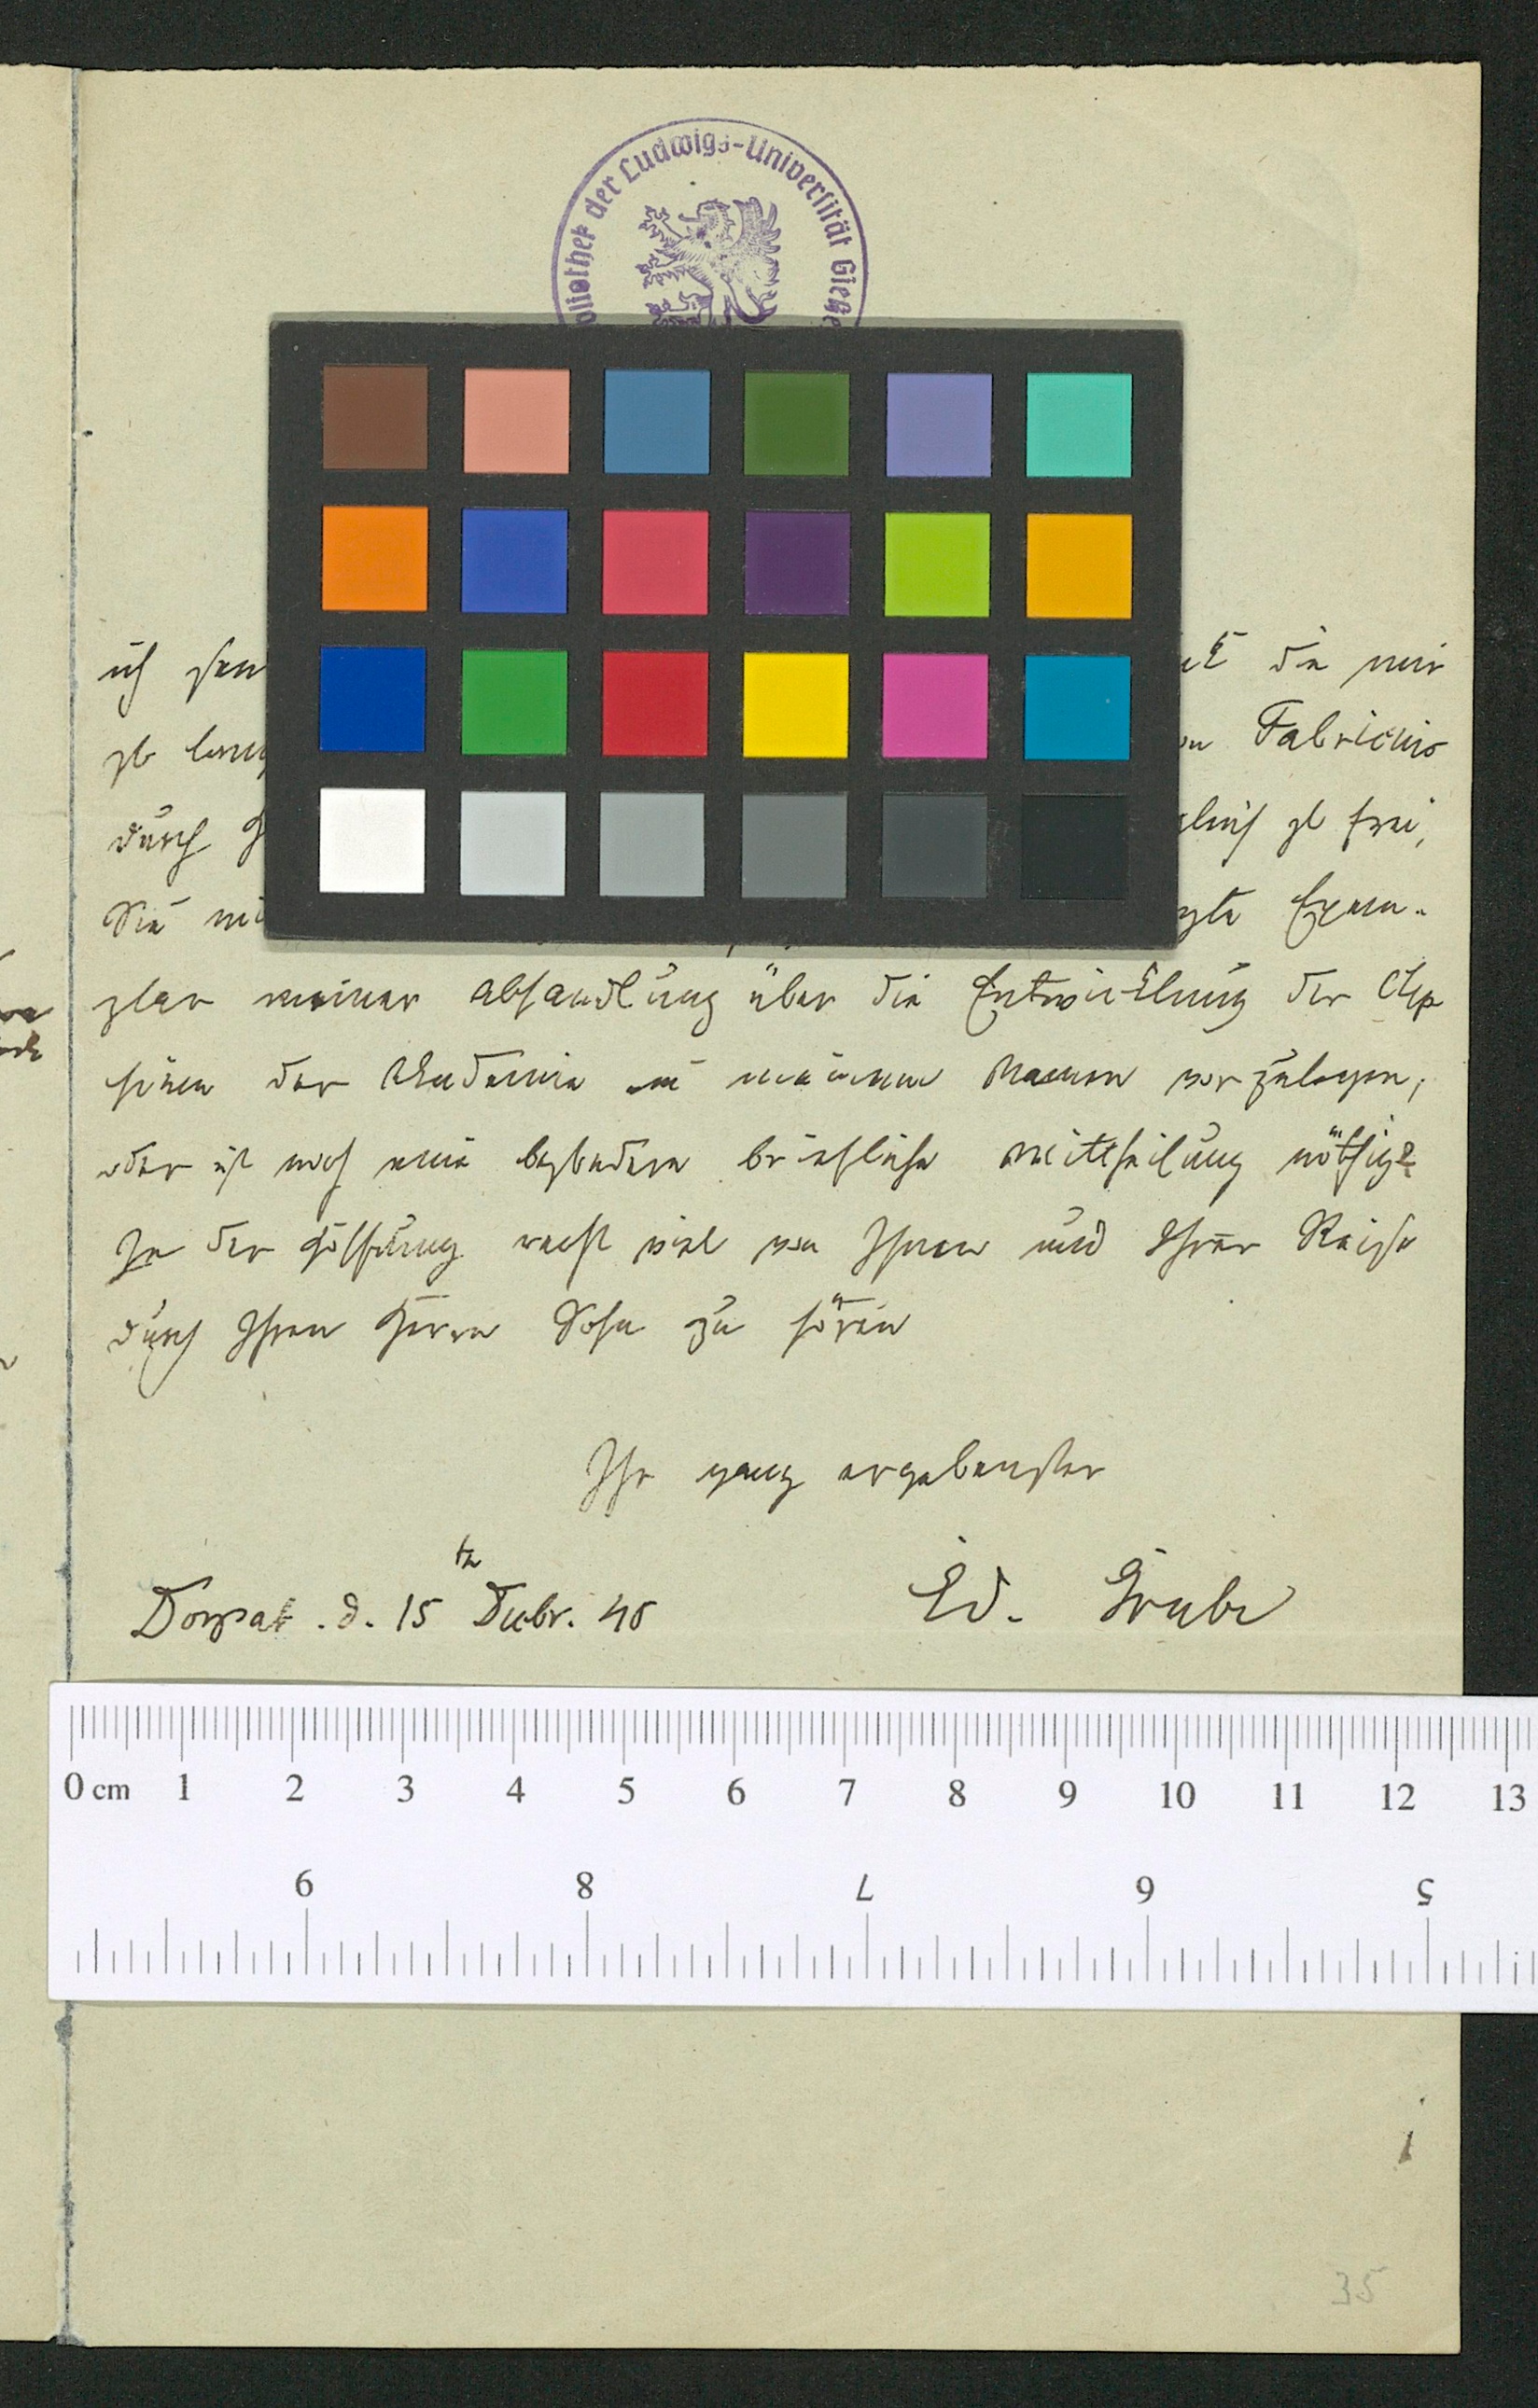 Bibliothek der Ludwigs-Universität Gieße
ich
die mir
Fabricius
durch
zb frei,
Sie
Exem-
plar meiner Abhandlung über die Entwicklung der Clep
sinen der Akademie in meinem Namen vorzulegen,
oder ist noch eine besondere briefliche Mittheilung nöthig?
In der Hoffnung recht viel von Ihnen und Ihrer Reise
durch Ihren Herrn Sohn zu hören
Ihr ganz ergebenster
Dorpat. d. 15 tn Decbr. 45
Ed. Grube
0 cm 1 2 3 4 5 6 7 8 9 10 11 12 13
9 8 7 6 5
35